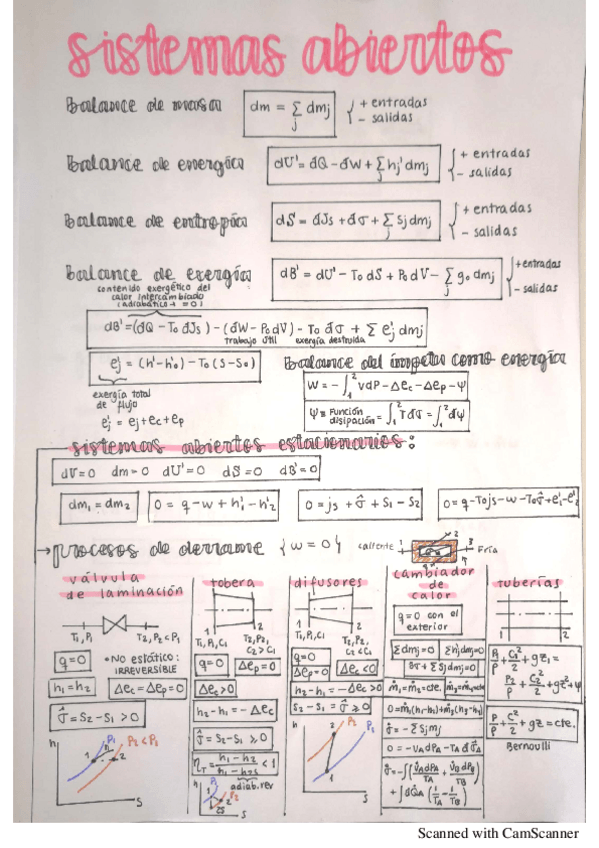 sistemas abiertos
balance de masa
dm = Σj dmj { + entradas
- salidas
balance de energía
dU' = đQ - đW + Σj hj' dmj { + entradas
- salidas
balance de entropía
dS = đJs + đσ + Σj Sj dmj { + entradas
- salidas
balance de exergía
dB' = dU' - T₀ dS + P₀ dV - Σj g₀ dmj { + entradas
- salidas
contenido exergético del
calor intercambiado
(adiabático → = 0)
dB' = (đQ - T₀ đJs) - (đW - P₀dV) - T₀ đσ + Σ ej' dmj
trabajo útil exergía destruida
ej = (h' - h'₀) - T₀ (S - S₀)
exergía total
de flujo
ej' = ej + ec + ep
balance del ímpetu como energía
W = - ∫₁² vdP - Δec - Δep - ψ
ψ = función
disipación = ∫₁² Tđσ = ∫₁² đψ
sistemas abiertos estacionarios:
dV=0 dm=0 dU'=0 dS=0 dB'=0
dm₁ = dm₂
0 = q - w + h₁' - h₂'
0 = js + σ̂ + S₁ - S₂
0 = q - T₀js - w - T₀σ̂ + e₁' - e₂'
→ procesos de derrame { w = 0 }
caliente 1 2 3 Fría
válvula
de laminación
T₁, P₁ T₂, P₂ < P₁
q=0
• No estático:
IRREVERSIBLE
h₁ = h₂
Δec = Δep = 0
σ̂ = S₂ - S₁ > 0
h P₁ P₂ < P₁
1 2
S
tobera
1 2
T₁, P₁, C₁ T₂, P₂,
C₂ > C₁
q=0 Δep = 0
Δec > 0
h₂ - h₁ = - Δec
σ̂ = S₂ - S₁ ≥ 0
ηT = (h₁ - h₂)/(h₁ - h₂s) < 1
adiab. rev
h P₁ P₂
1 2
2s
S
difusores
1 2
T₁, P₁, C₁ T₂, P₂,
C₂ < C₁
q=0
Δep = 0 Δec < 0
h₂ - h₁ = - Δec > 0
S₂ - S₁ = σ̂ ≥ 0
h 2 P₂ P₁
1
S
cambiador
de
calor
q=0 con el
exterior
Σdmj = 0 Σhjdmj = 0
đσ + ΣSjdmj = 0
ṁ₁ = ṁ₂ = cte. ṁ₃ = cte.
σ̇ = - ΣSjṁj
tuberías
P₁/ρ + C₁²/2 + gz₁ =
P₂/ρ + C₂²/2 + gz₂ + ψ
P/ρ + C²/2 + gz = cte.
Bernoulli
Scanned with CamScanner